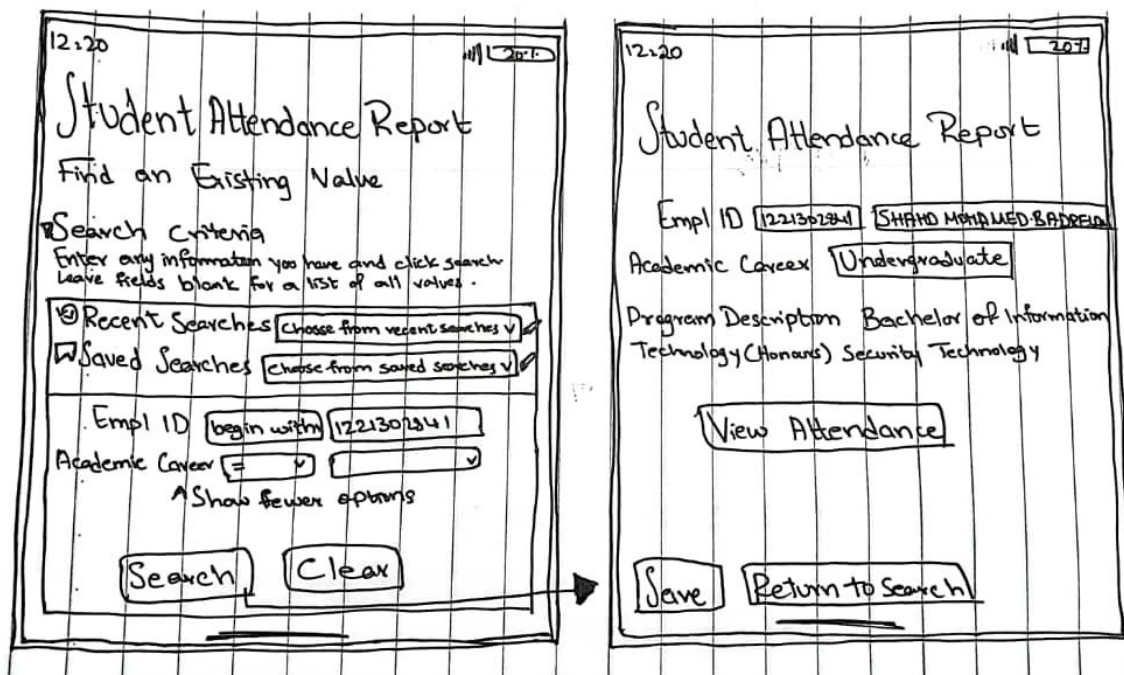 12:20
20%
Student Attendance Report
Find an Existing Value
Search Criteria
Enter any information you have and click search
Leave fields blank for a list of all values.
Recent Searches Choose from recent searches
Saved Searches Choose from saved searches
Empl ID begin with 1221302841
Academic Career =
Show fewer options
Search Clear
12:20
20%
Student Attendance Report
Empl ID 1221302841 SHAHD MOHAMED BADRELD
Academic Career Undergraduate
Program Description Bachelor of Information
Technology (Honours) Security Technology
View Attendance
Save Return to Search